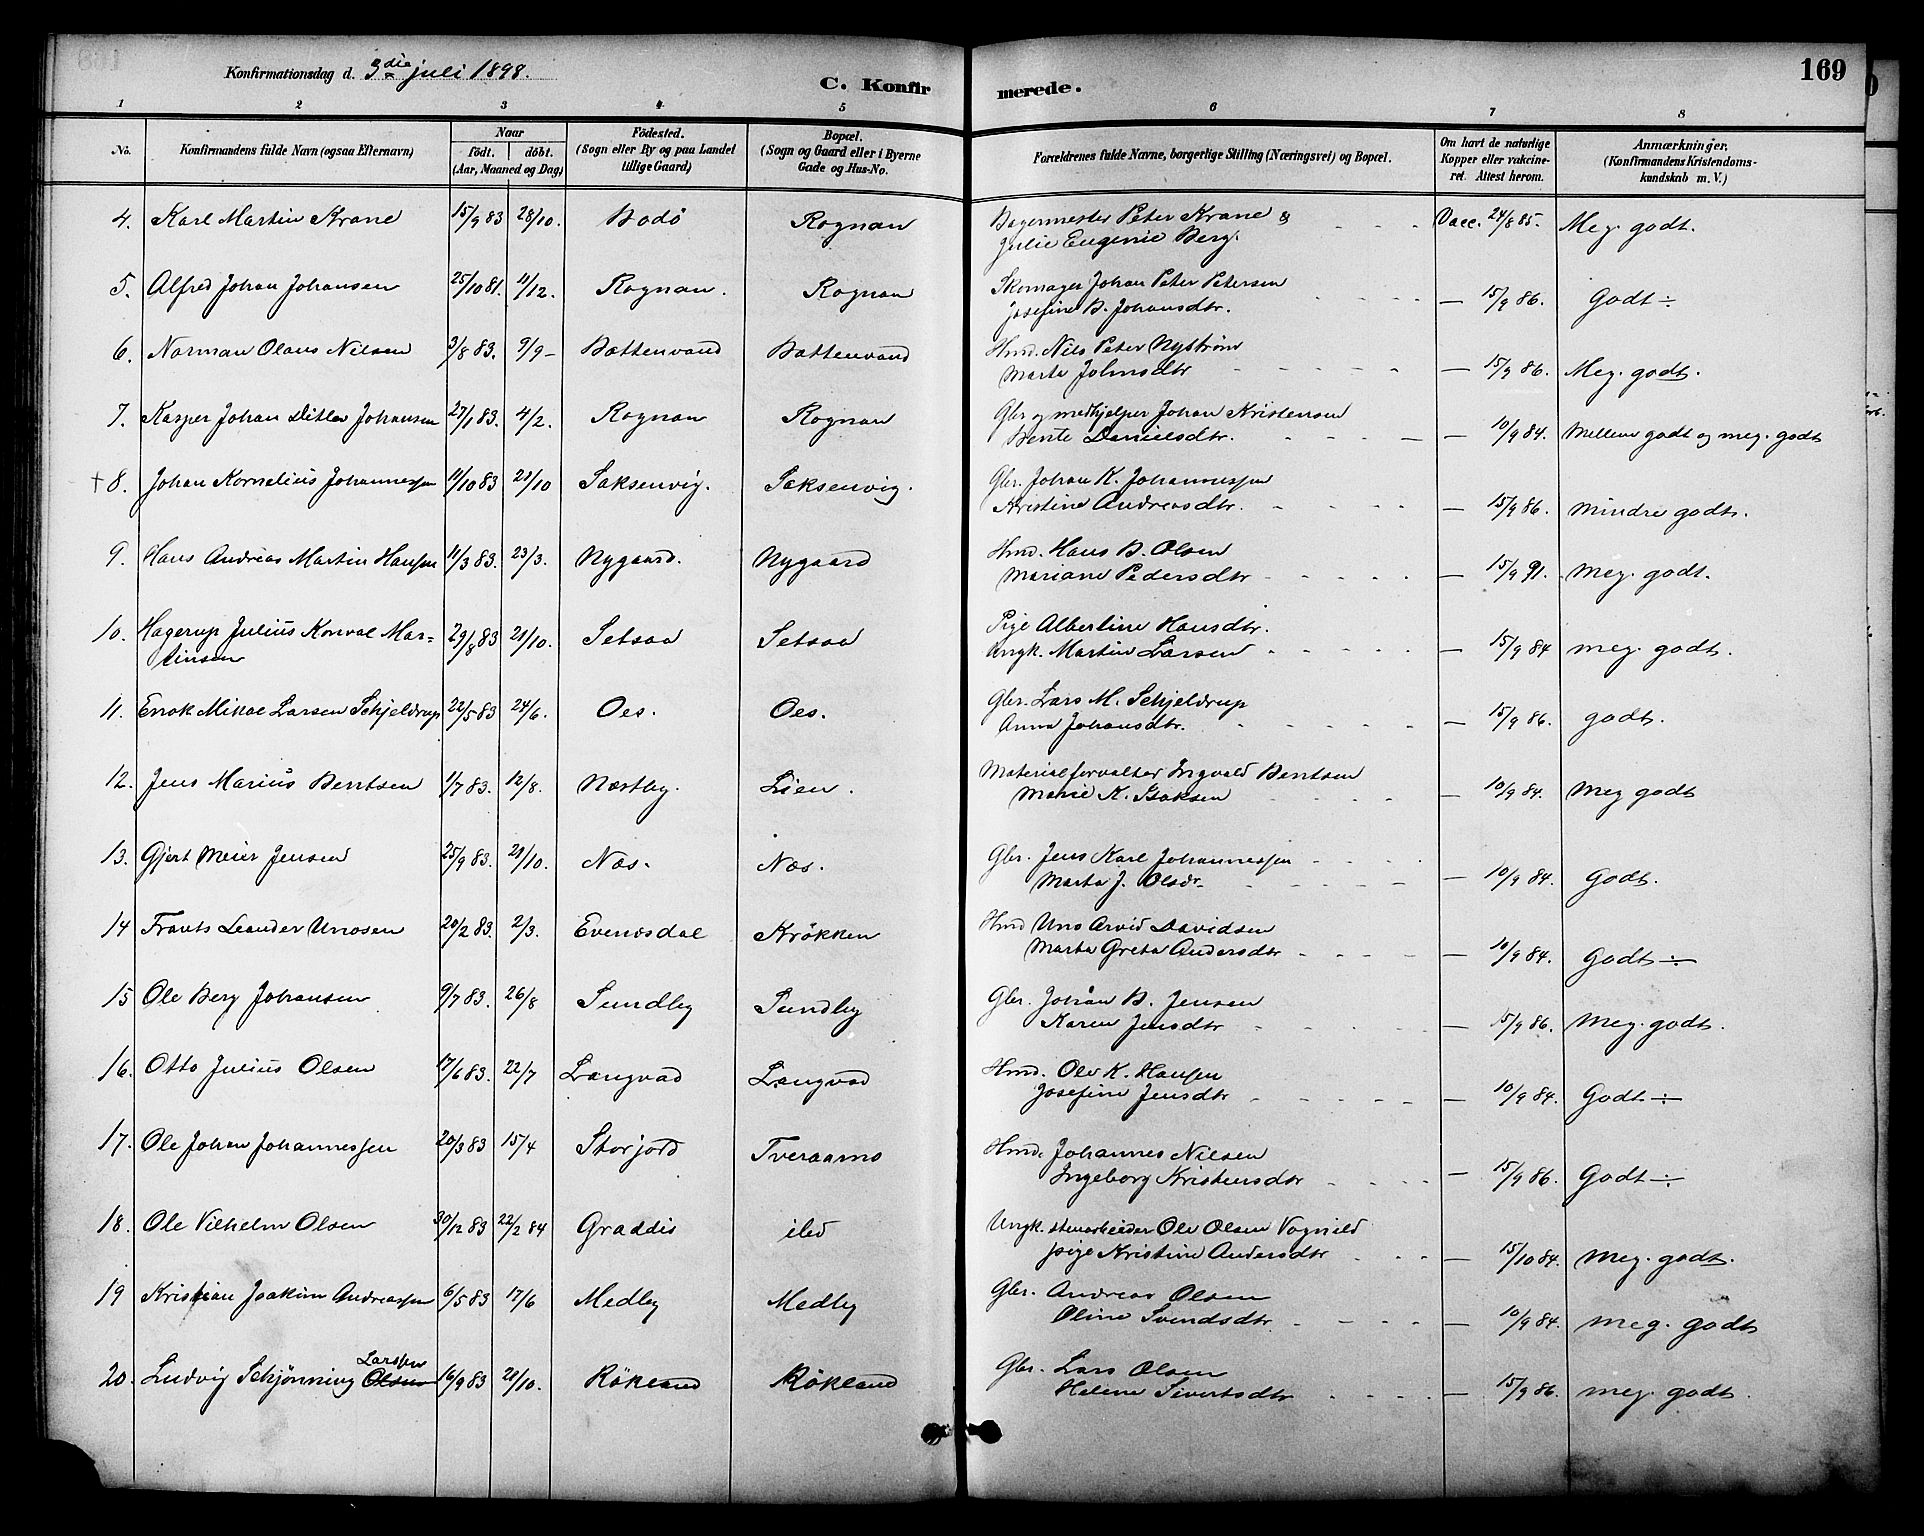 Konfirmationsdag d. 3die juli 1898.
C. Konfirmerede.
169
1 2 3 4 5 6 7 8
No. Konfirmandens fulde Navn (ogsaa Efternavn) Naar født. døbt. (Aar, Maaned og Dag) Fødested. (Sogn eller By og paa Landet tillige Gaard) Bopæl. (Sogn og Gaard eller i Byerne Gade og Hus-No. Forældrenes fulde Navne, borgerlige Stilling (Næringsvei) og Bopæl. Om havt de naturlige Kopper eller vakcineret. Attest herom. Anmærkninger, (Konfirmandens Kristendomskundskab m. V.)
4. Karl Martin Krane 15/9 83 28/10. Bodö Rognan Bagermester Peter Krane & Vacc. 24/8 85. Meg. godt.
Julie Eugenie Berg.
5. Alfred Johan Johansen 25/10 81. 11/12. Rognan. Rognan Skomager Johan Peter Petersen
Josefine B. Johansdtr. — 15/9 86. Godt ÷
6. Norman Olaus Nilsen 3/8 83. 9/9 — Battenvand Battenvand Hmd. Nils Peter Nyström
Marta Johnsdtr — 15/9 86. Meg. godt.
7. Kasper Johan Ditlev Johansen 27/1 83. 4/2. Rognan Rognan Gbr. og medhjelper Johan Kristensen
Bente Danielsdtr. — 10/9 84. Mellem godt og meg. godt
+ 8. Johan Kornelius Johannessen 11/10 83 21/10 Saksenvig. Saksenvig. Gbr. Johan K. Johannessen
Kristine Andreasdtr. — 15/9 86. mindre godt.
9. Hans Andreas Martin Hansen 11/3 83. 23/3. Nygaard. Nygaard Hmd. Hans B. Olsen
Mariane Pedersdtr — 15/9 91. Meg. godt.
10. Hagerup Julius Konval Mar- 29/8 83 21/10. Setsaa Setsaa Pige Albertine Hansdtr.
tinsen Ungk. Martin Larsen — 15/9 84 meg. godt.
11. Enok Mikal Larsen Schjeldrup 22/5 83 24/6. Oes. Oes. Gbr. Lars M. Schjeldrup
Anna Johansdtr. — 15/9 86. godt.
12. Jens Marius Bentsen 1/7 83. 12/8. Næstby. Lien. Materialforvalter Ingvald Bentsen
Marie K. Isaksen — 10/9 84. Meg godt
13. Gjert Meier Jensen 25/9 83. 21/10. Næs. Næs. Gbr. Jens Karl Johannessen
Marta J. Olsdr — 10/9 84. Godt.
14 Frants Leander Unosen 20/2 83. 2/3. Evenesdal Krökken Hmd Uno Arvid Davidsen
Marta Greta Andersdtr — 10/9 84. Godt ÷
15 Ole Berg Johansen 9/7 83. 26/8 Sundby Sundby Gbr. Johan B. Jensen
Karen Jensdtr — 15/9 86. Meg. godt.
16. Otto Julius Olsen 17/6 83. 22/7 Langvad Langvad Hmd. Ole K. Hansen
Josefine Jensdtr — 10/9 84. Godt ÷
17. Ole Johan Johannessen 20/3 83 15/4 Storjord Tveraamo Hmd. Johannes Nilsen
Ingeborg Kristensdtr — 15/9 86. Godt ÷
18. Ole Vilhelm Olsen 30/12 83 22/2 84 Graddis ibid Ungk. stenarbeider Ole Olsen Vognild
pige Kristine Andersdtr — 15/10 84. Meg. godt.
19 Kristian Joakim Andreassen 6/5 83 17/6 Medby Medby Gbr. Andreas Olsen
Oline Svendsdtr — 10/9 84. Meg. godt
20. Ludvig Schjönning Olsen Larssen 16/9 83 21/10. Rökland Rökland Gbr. Lars Olsen
Helene Sivertsdtr — 15/9 86. meg. godt.